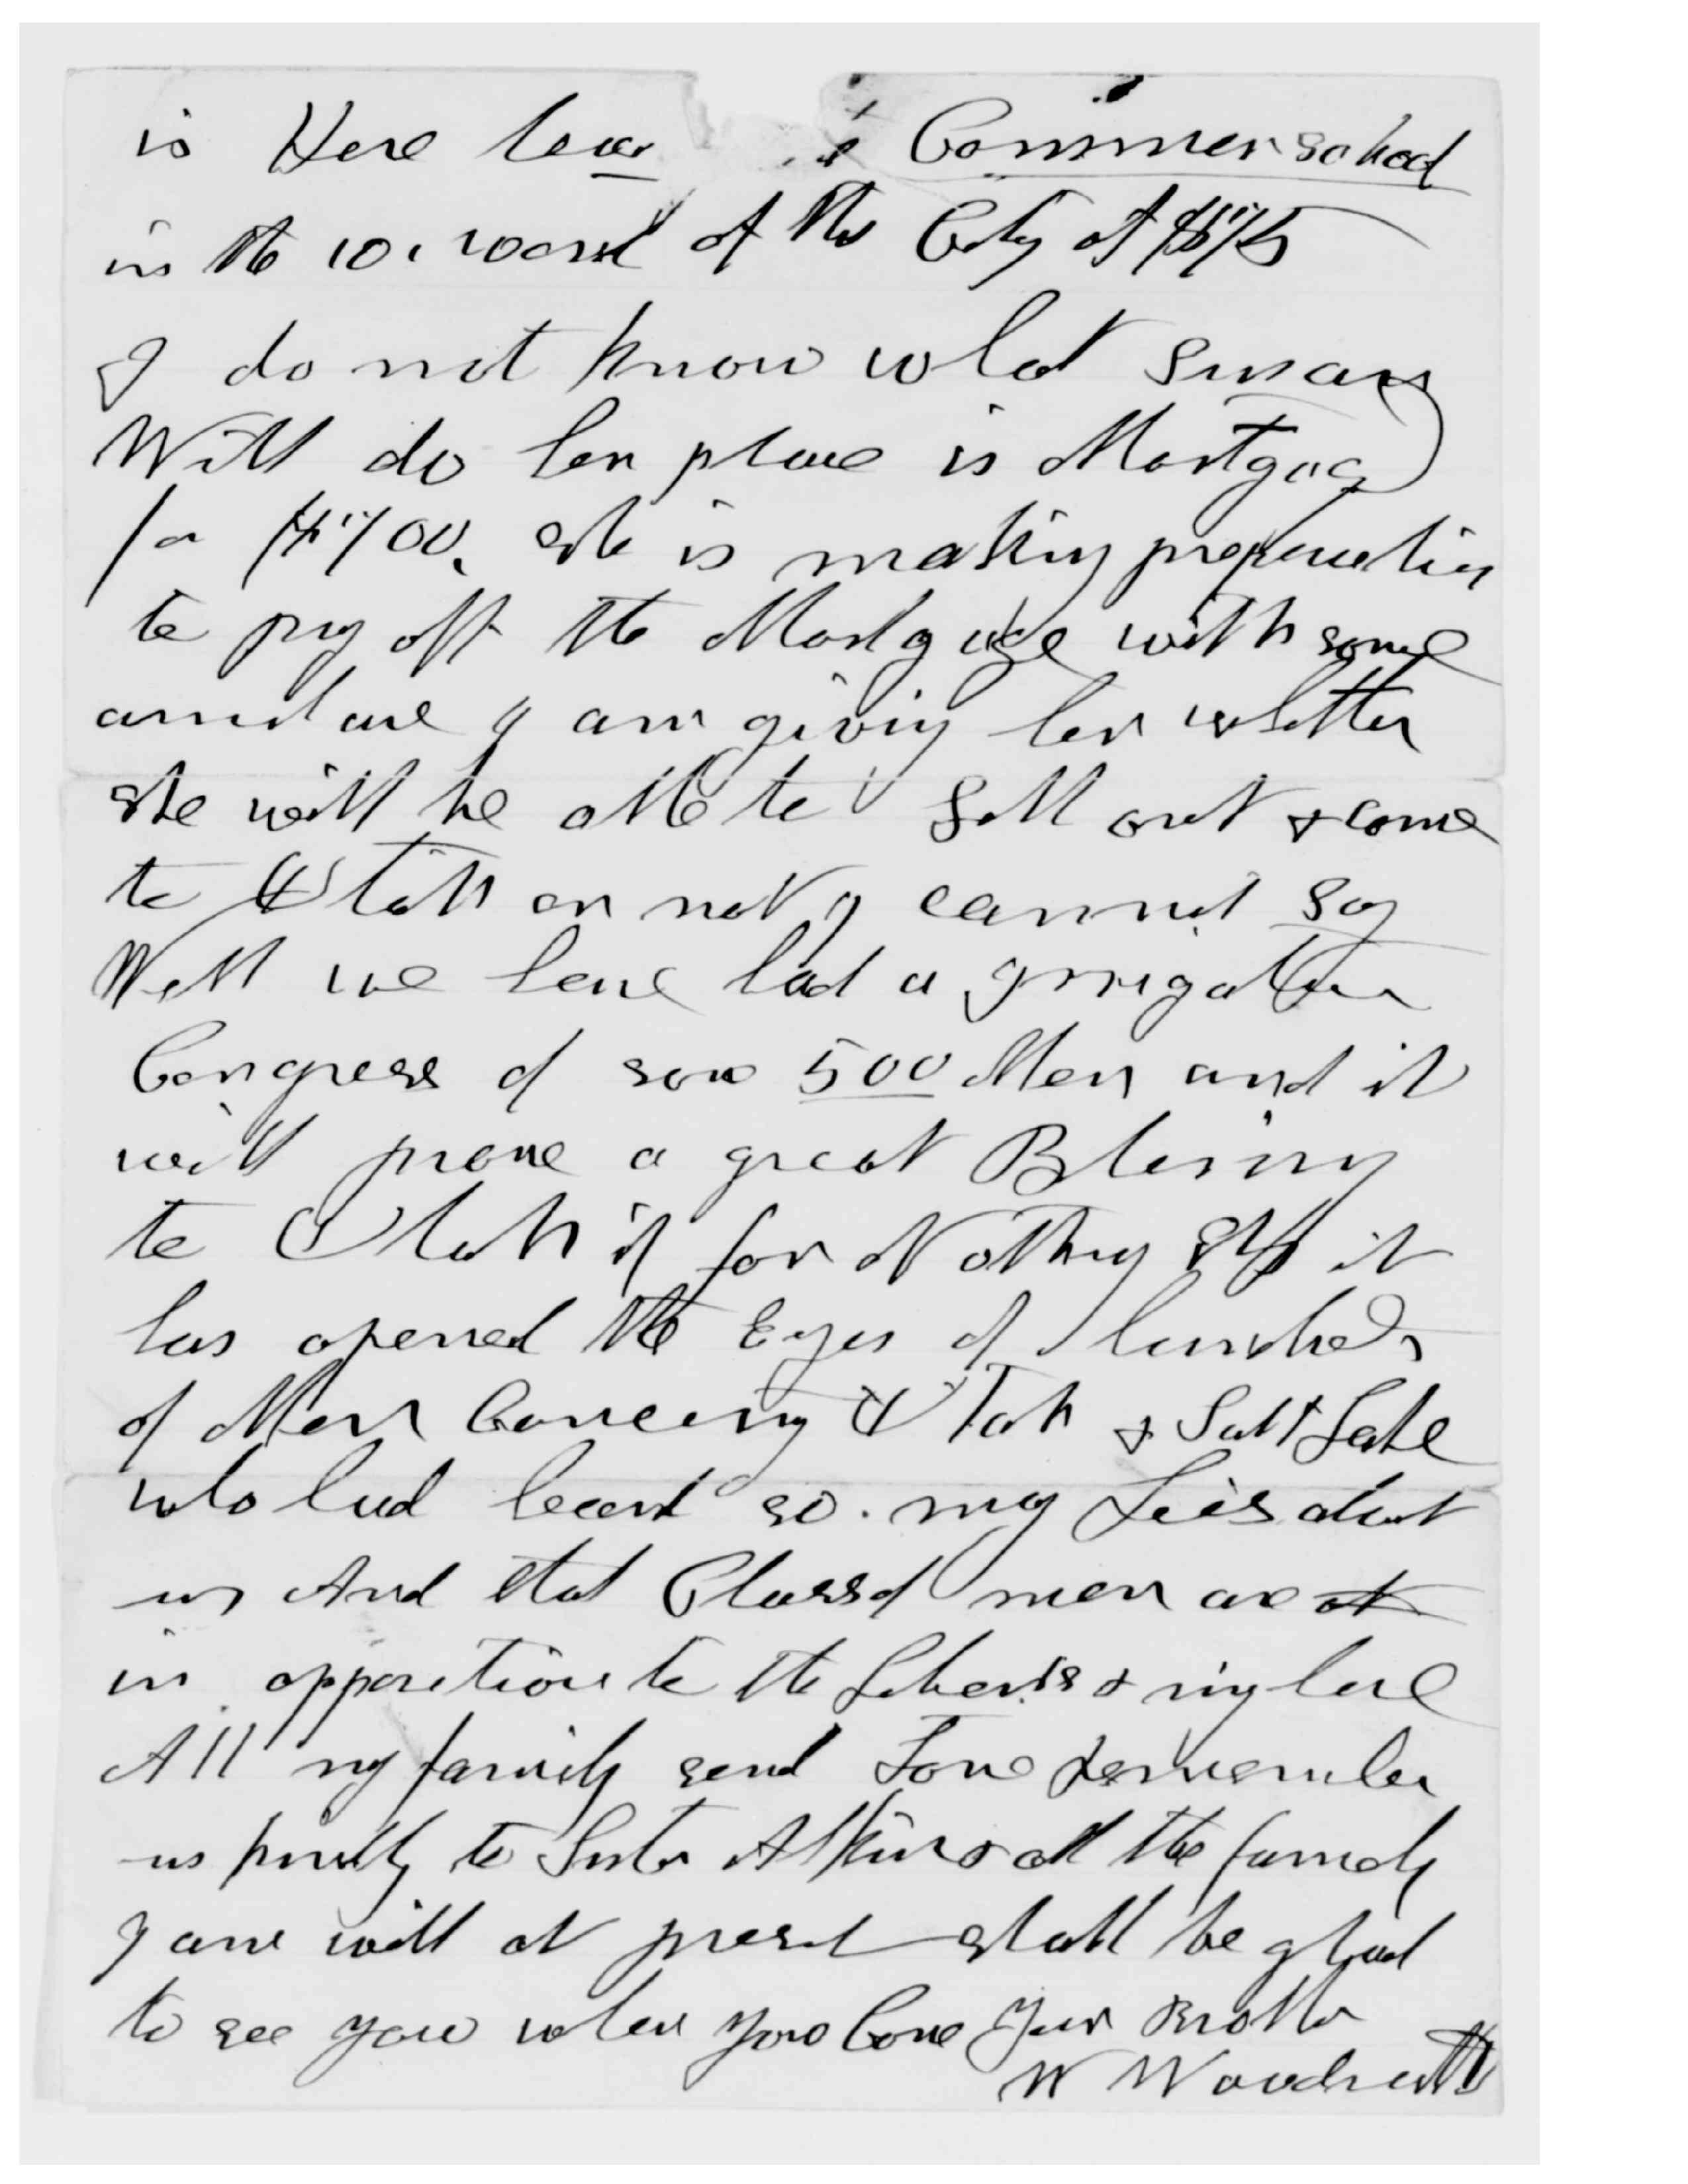 is Here teac Common school
in the 10. ward of the City at $75
I do not know what Susan
Will do her place is Mortgag
for $700. she is making preparation
to pay off the Mortgage with some
I am giving her whether
she will be able to sell out & come
to Utah or not I cannot say
Well we have had a Irrigation
Congress of some 500 Men and it
will prove a great Blessing
to Utah if for Nothing Els it
has opened the Eyes of hundreds
of Men Concerning Utah & Salt Lake
who had heard so. many Lies about
us And that Class of men are
in opposition to the Liberals & ring here
All my family send Love remember
us kindly to Sister Atkin & all the family
I am well at present shall be glad
to see you when you Come Your Brother
W Woodruff